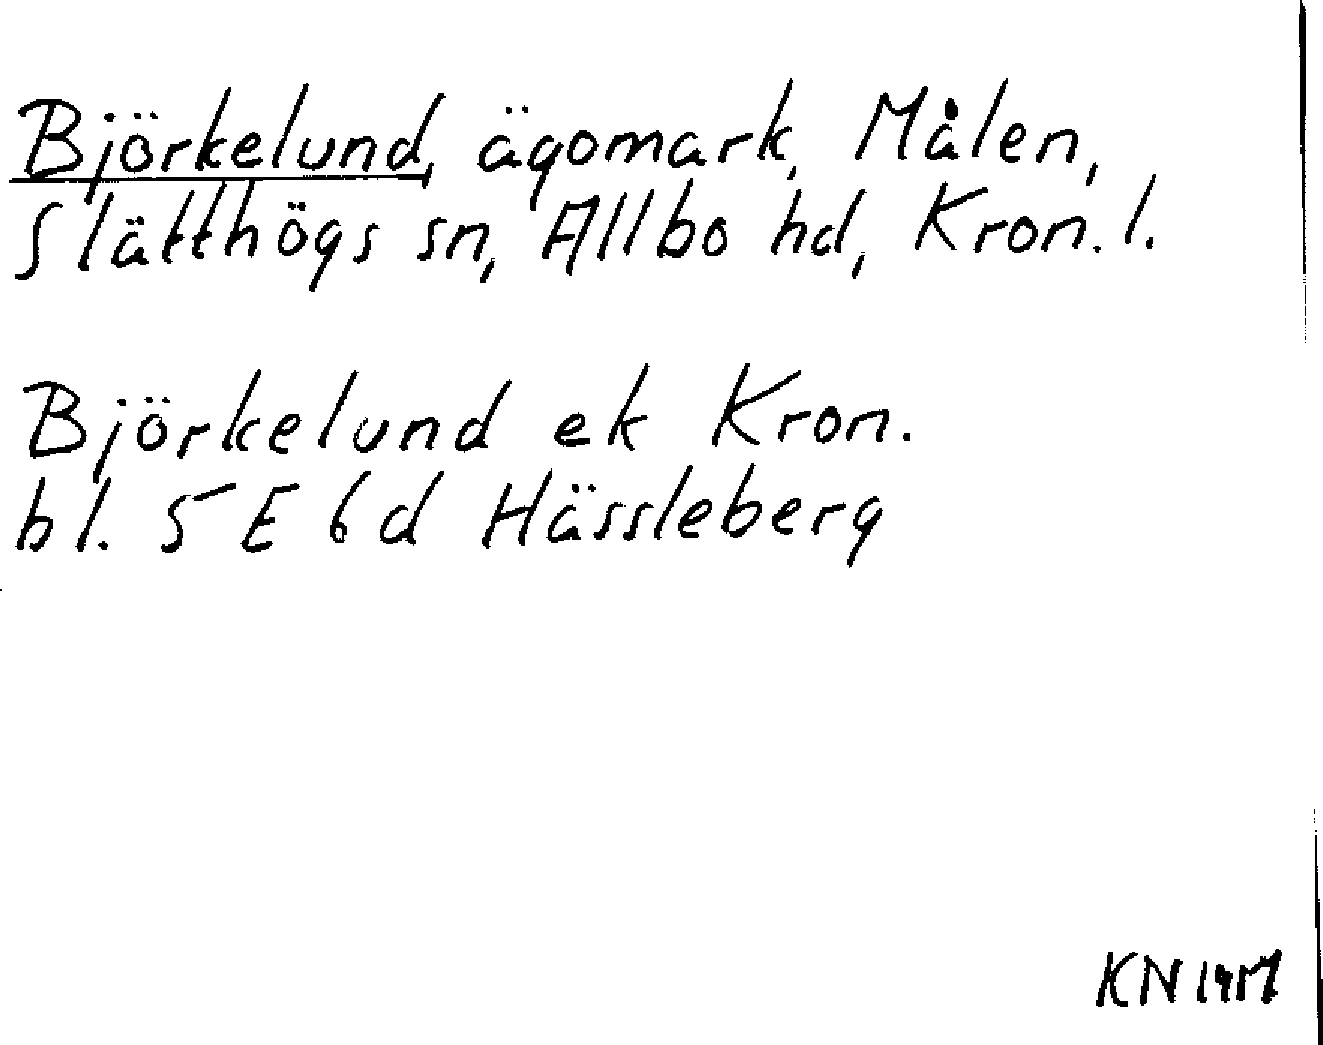 Björkelund, ägomark, Målen,
Slätthögs sn, Allbo hd, Kron. l.
Björkelund ek Kron.
bl. 5 E 6 d Hässleberg
KN